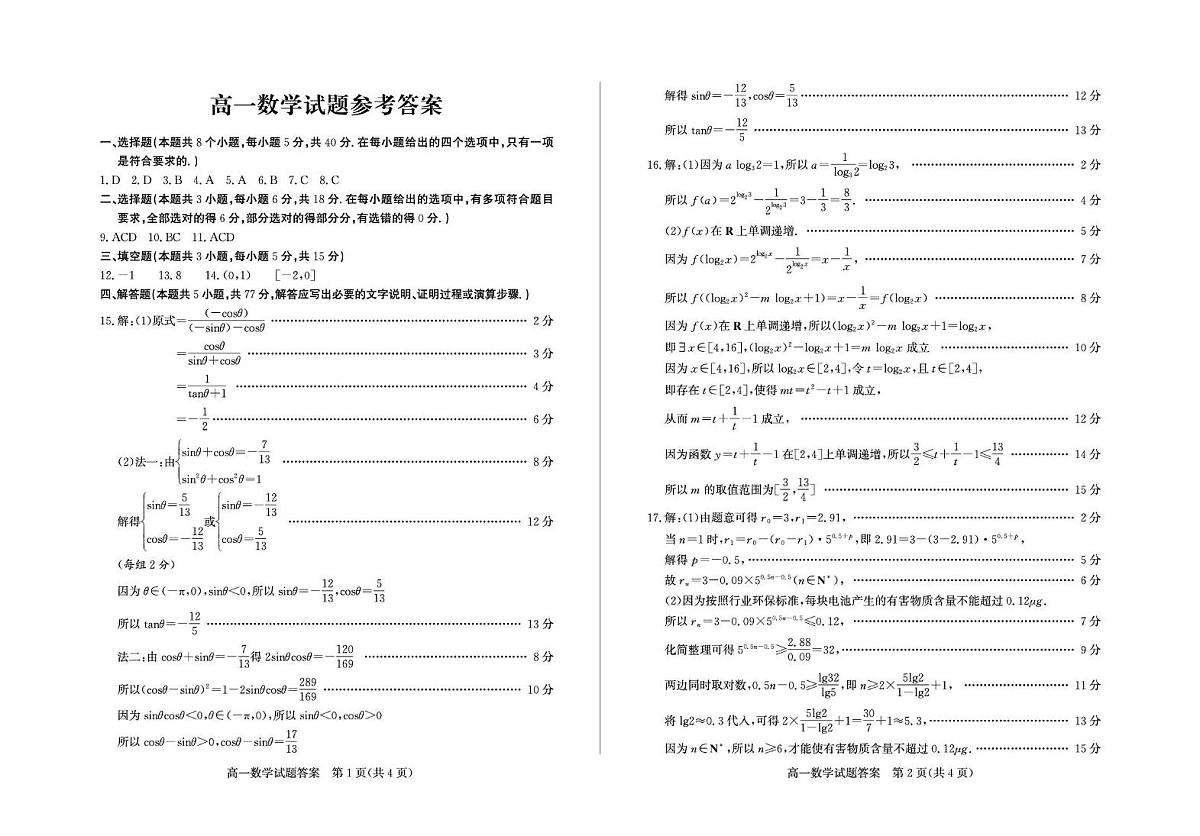 高一数学试题参考答案
一、选择题(本题共 8 个小题,每小题 5 分,共 40 分.在每小题给出的四个选项中,只有一项
是符合要求的.)
1.D 2.D 3.B 4.A 5.A 6.B 7.C 8.C
二、选择题(本题共 3 小题,每小题 6 分,共 18 分.在每小题给出的选项中,有多项符合题目
要求,全部选对的得 6 分,部分选对的得部分分,有选错的得 0 分.)
9.ACD 10.BC 11.ACD
三、填空题(本题共 3 小题,每小题 5 分,共 15 分)
12.-1 13.8 14.(0,1) [-2,0]
四、解答题(本题共 5 小题,共 77 分,解答应写出必要的文字说明、证明过程或演算步骤.)
15.解:(1)原式=(-cosθ)/((-sinθ)-cosθ) …… 2 分
=cosθ/(sinθ+cosθ) …… 3 分
=1/(tanθ+1) …… 4 分
=-1/2 …… 6 分
(2)法一:由{sinθ+cosθ=-7/13 sin²θ+cos²θ=1 …… 8 分
解得{sinθ=5/13 cosθ=-12/13 或{sinθ=-12/13 cosθ=5/13 …… 12 分
(每组 2 分)
因为 θ∈(-π,0),sinθ<0,所以 sinθ=-12/13,cosθ=5/13
所以 tanθ=-12/5 …… 13 分
法二:由 cosθ+sinθ=-7/13得 2sinθcosθ=-120/169 …… 8 分
所以(cosθ-sinθ)²=1-2sinθcosθ=289/169 …… 10 分
因为 sinθcosθ<0,θ∈(-π,0),所以 sinθ<0,cosθ>0
所以 cosθ-sinθ>0,cosθ-sinθ=17/13
高一数学试题答案 第 1 页(共 4 页)
解得 sinθ=-12/13,cosθ=5/13 …… 12 分
所以 tanθ=-12/5 …… 13 分
16.解:(1)因为 a log₃2=1,所以 a=1/log₃2=log₂3, …… 2 分
所以 f(a)=2^(log₂3)-1/2^(log₂3)=3-1/3=8/3. …… 4 分
(2)f(x)在 R 上单调递增. …… 5 分
因为 f(log₂x)=2^(log₂x)-1/2^(log₂x)=x-1/x, …… 7 分
所以 f((log₂x)²-m log₂x+1)=x-1/x=f(log₂x) …… 8 分
因为 f(x)在 R 上单调递增,所以(log₂x)²-m log₂x+1=log₂x,
即∃x∈[4,16],(log₂x)²-log₂x+1=m log₂x 成立 …… 10 分
因为 x∈[4,16],所以 log₂x∈[2,4],令 t=log₂x,且 t∈[2,4],
即存在 t∈[2,4],使得 mt=t²-t+1 成立,
从而 m=t+1/t-1 成立, …… 12 分
因为函数 y=t+1/t-1 在[2,4]上单调递增,所以3/2≤t+1/t-1≤13/4 …… 14 分
所以 m 的取值范围为[3/2,13/4] …… 15 分
17.解:(1)由题意可得 r₀=3,r₁=2.91, …… 2 分
当 n=1 时,r₁=r₀-(r₀-r₁)·5^(0.5+p),即 2.91=3-(3-2.91)·5^(0.5+p),
解得 p=-0.5, …… 5 分
故 rₙ=3-0.09×5^(0.5n-0.5)(n∈N*), …… 6 分
(2)因为按照行业环保标准,每块电池产生的有害物质含量不能超过 0.12μg.
所以 rₙ=3-0.09×5^(0.5n-0.5)≤0.12, …… 7 分
化简整理可得 5^(0.5n-0.5)≥2.88/0.09=32, …… 9 分
两边同时取对数,0.5n-0.5≥lg32/lg5,即 n≥2×5lg2/(1-lg2)+1, …… 11 分
将 lg2≈0.3 代入,可得 2×5lg2/(1-lg2)+1=30/7+1≈5.3, …… 13 分
因为 n∈N*,所以 n≥6,才能使有害物质含量不超过 0.12μg. …… 15 分
高一数学试题答案 第 2 页(共 4 页)